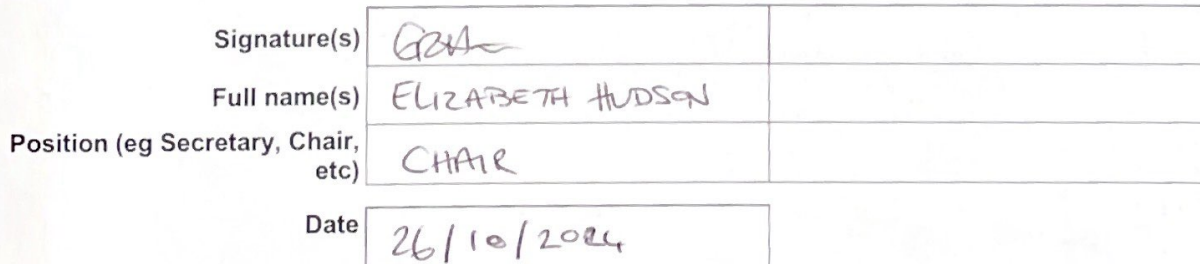 Signature(s)
Full name(s) ELIZABETH HUDSON
Position (eg Secretary, Chair,
etc) CHAIR
Date 26/10/2024